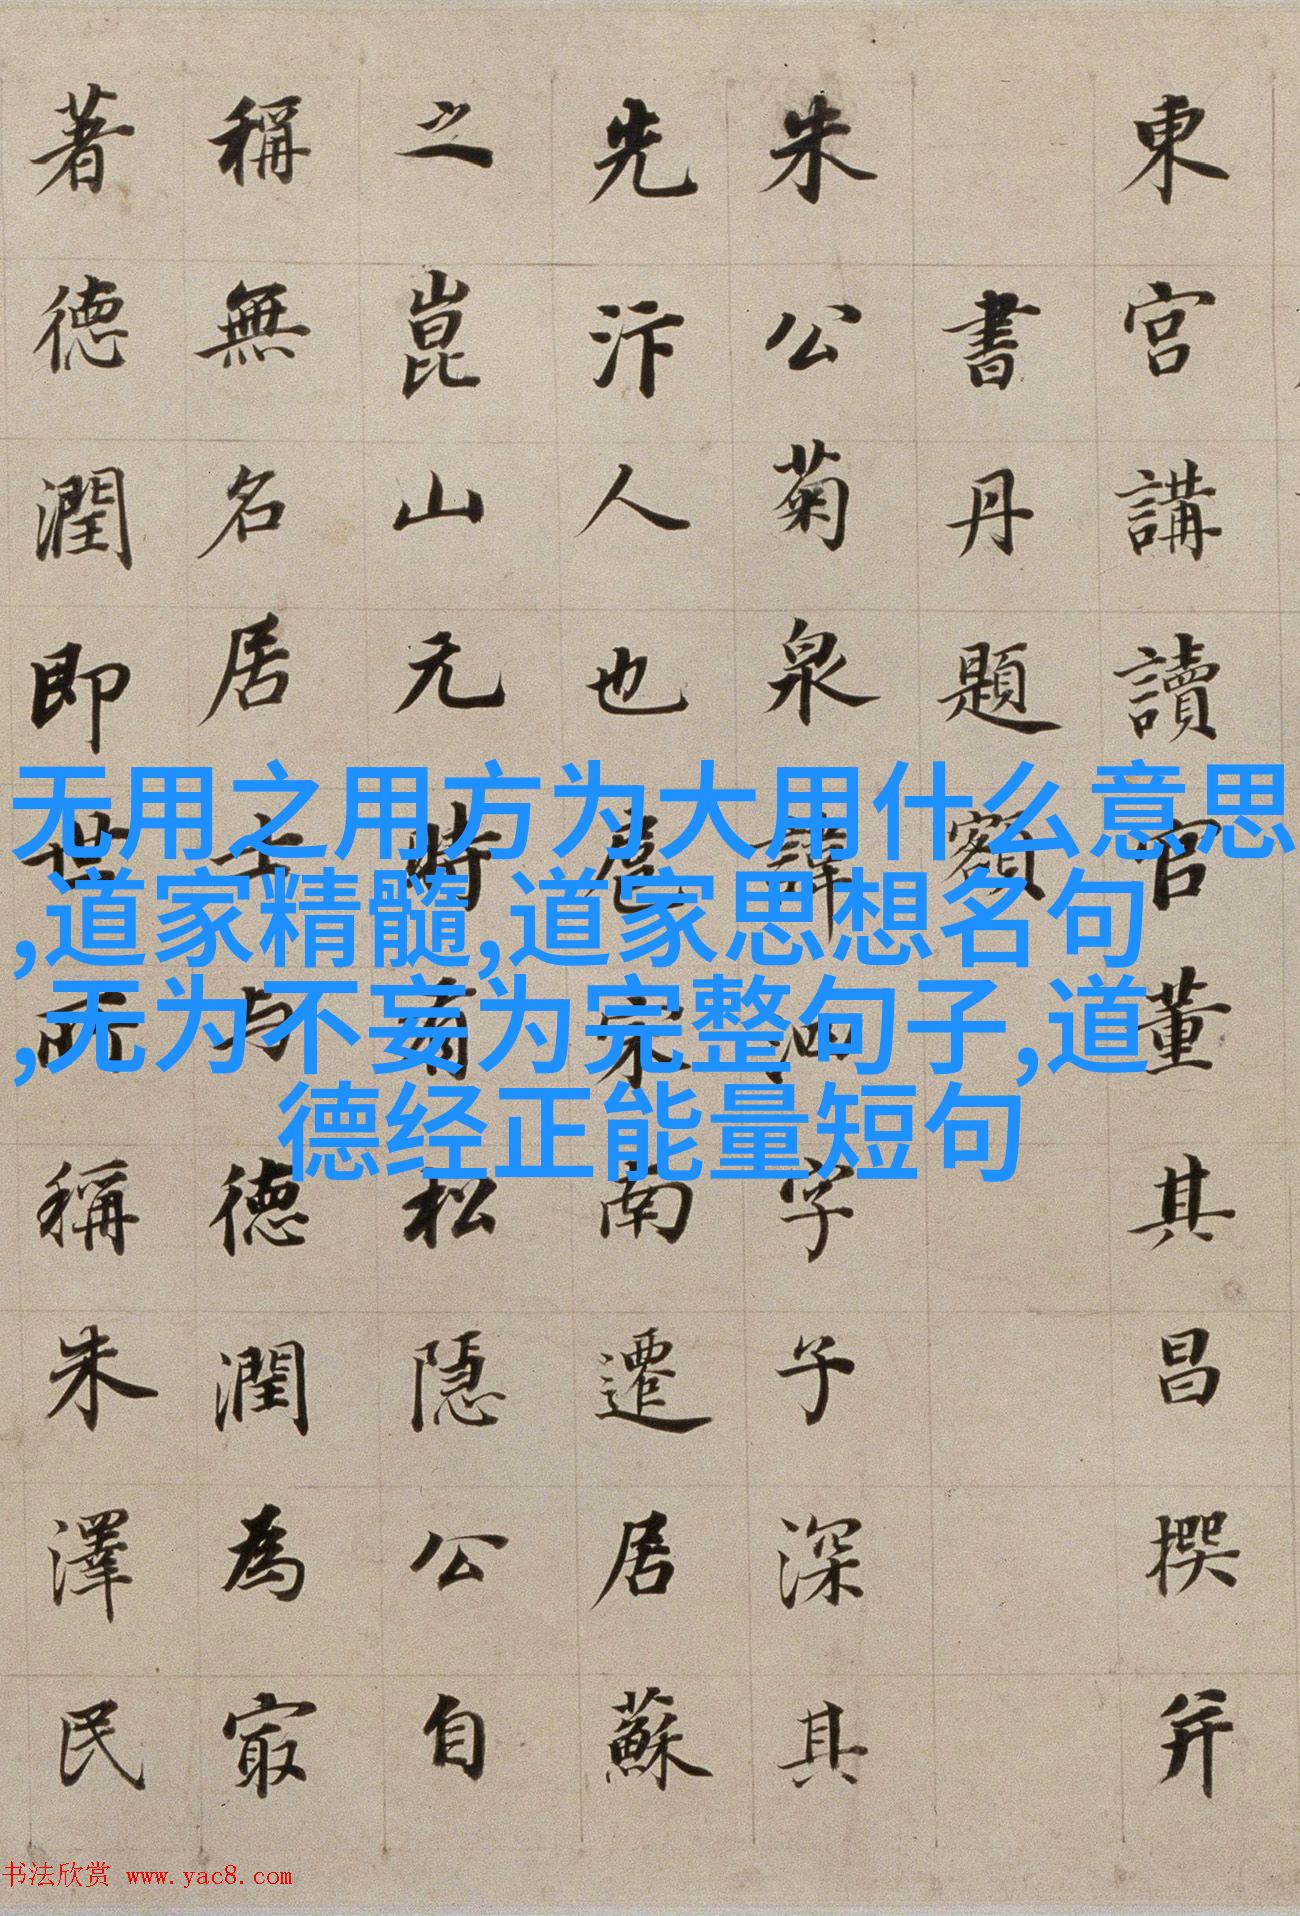 東宮講讀官董其昌撰并
書丹題額
朱公菊泉諱字子深其
先汴人也扈宋南遷居蘇
之崑山元時有松隱公自
稱無名居士与德潤為冣
著德潤即世所稱朱澤民
无用之用方为大用什么意思
,道家精髓,道家思想名句
,无为不妄为完整句子,道
德经正能量短句
书法欣赏 www.yac8.com